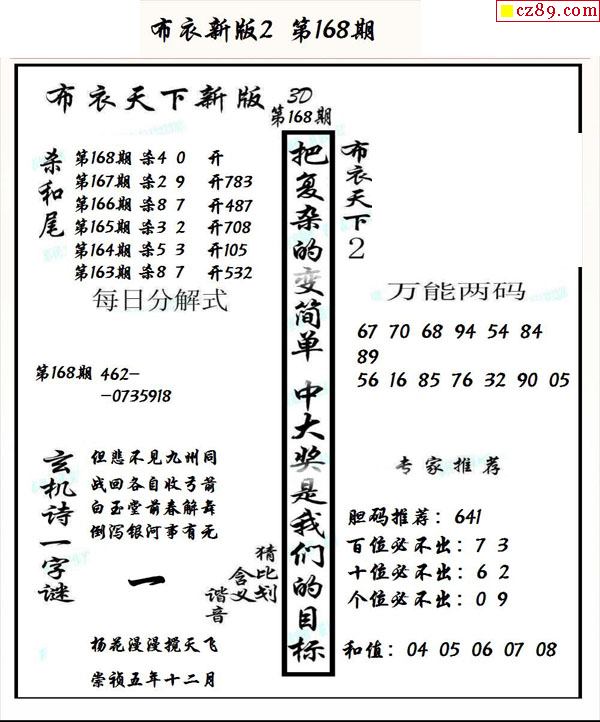 cz89.com
布衣新版2 第168期
布衣天下新版 3D
第168期
杀和尾
第168期 杀4 0 开
第167期 杀2 9 开783
第166期 杀8 7 开487
第165期 杀3 2 开708
第164期 杀5 3 开105
第163期 杀8 7 开532
每日分解式
第168期 462-
-0735918
玄机诗一字谜
但悲不见九州同
战回各自收弓箭
白玉堂前春解舞
倒泻银河事有无
一
猜比划
含义
谐音
杨花漫漫搅天飞
崇祯五年十二月
把复杂的变简单 中大奖是我们的目标
布衣天下2
万能两码
67 70 68 94 54 84
89
56 16 85 76 32 90 05
专家推荐
胆码推荐：641
百位必不出：7 3
十位必不出：6 2
个位必不出：0 9
和值：04 05 06 07 08